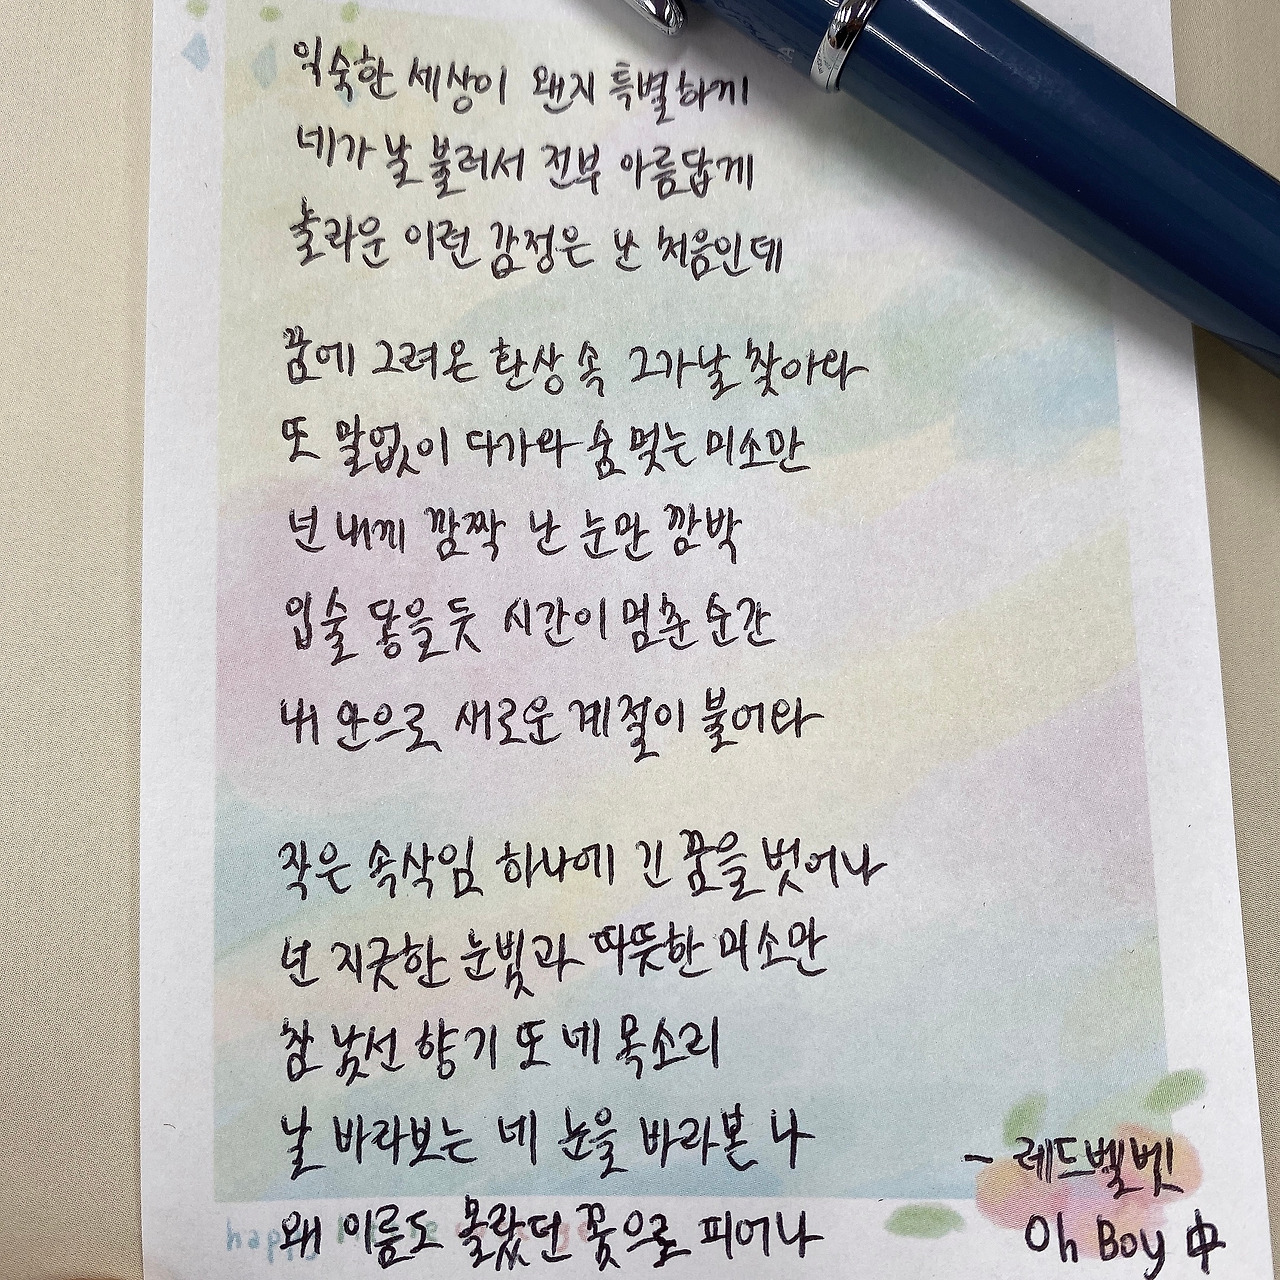 익숙한 세상이 왠지 특별하게
네가 날 불러서 전부 아름답게
놀라운 이런 감정은 난 처음인데
꿈에 그려온 환상 속 그가 날 찾아와
또 말없이 다가와 숨 멎는 미소만
넌 내게 깜짝 난 눈만 깜박
입술 닿을 듯 시간이 멈춘 순간
내 안으로 새로운 계절이 불어와
작은 속삭임 하나에 긴 꿈을 벗어나
넌 지긋한 눈빛과 따뜻한 미소만
참 낯선 향기 또 네 목소리
날 바라보는 네 눈을 바라본 나
왜 이름도 몰랐던 꽃으로 피어나
- 레드벨벳
Oh Boy 中
happy